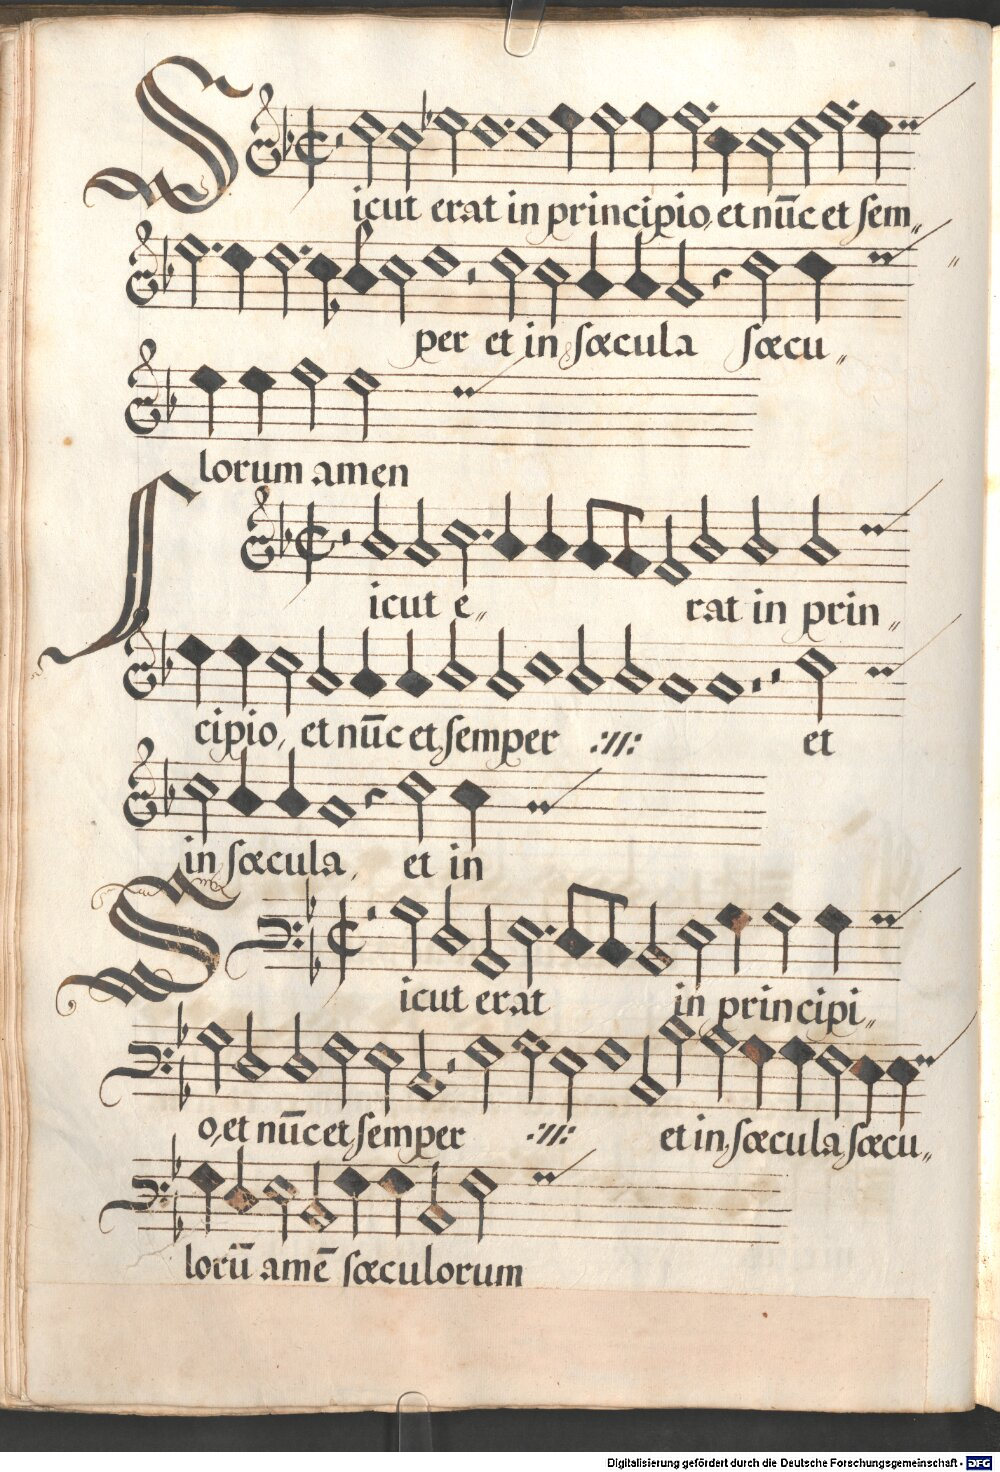 Sicut erat in principio, et nūc et sem〃
per et in sæcula sæcu〃
lorum amen
Sicut e〃 rat in prin〃
cipio, et nūc et semper :〃: et
in sæcula, et in
Sicut erat in principi〃
o, et nūc et semper :〃: et in sæcula sæcu〃
lorū amē sæculorum
Digitalisierung gefördert durch die Deutsche Forschungsgemeinschaft - DFG